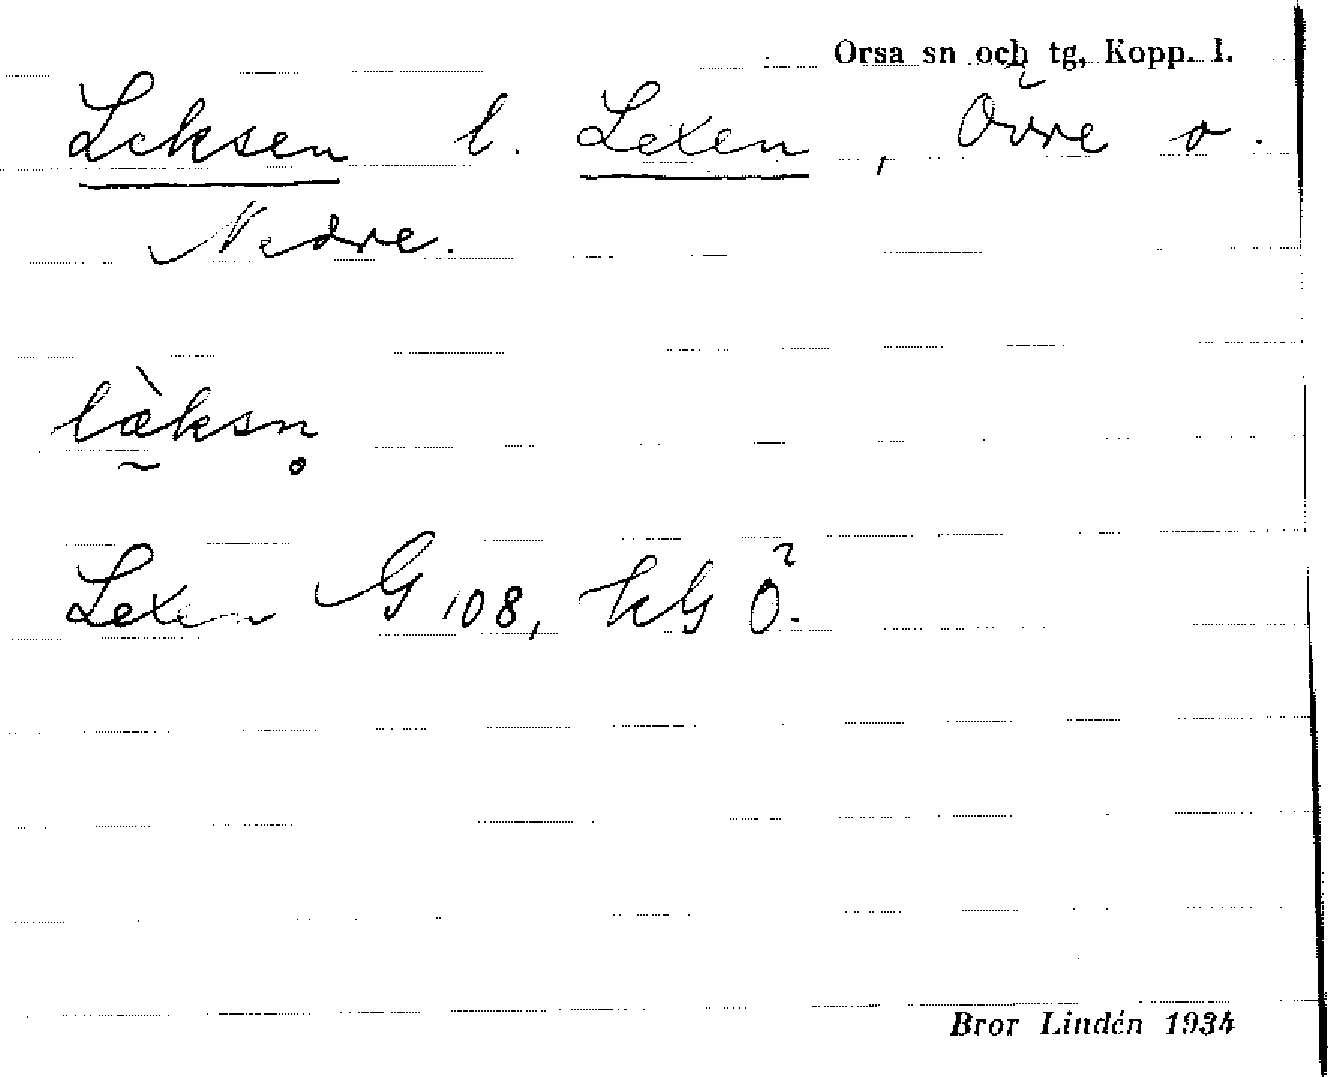 Orsa sn och tg, Kopp. l.
Leksen l. Lexen, Övre o.
Nedre.
læ̀ksn̥
Lexen G 108, hG Ö.
Bror Lindén 1934